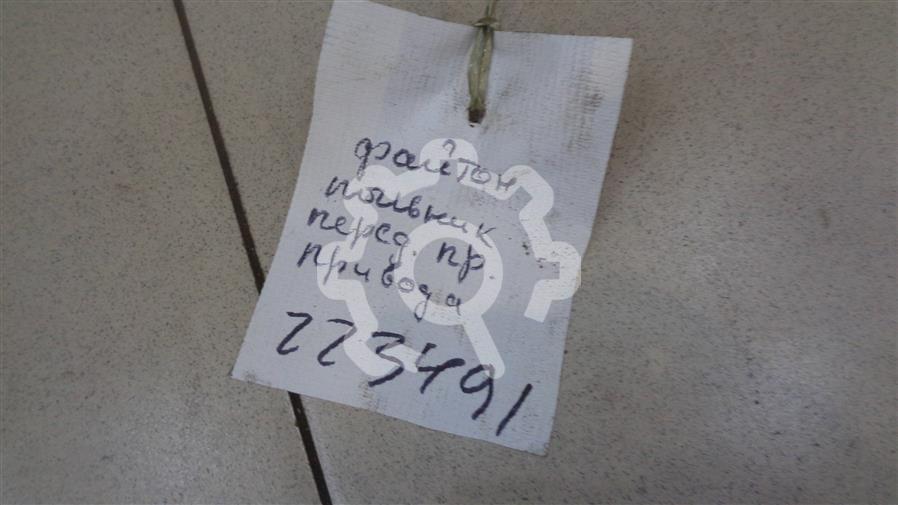 файтон
пыльник
перед. пр.
привода
223491